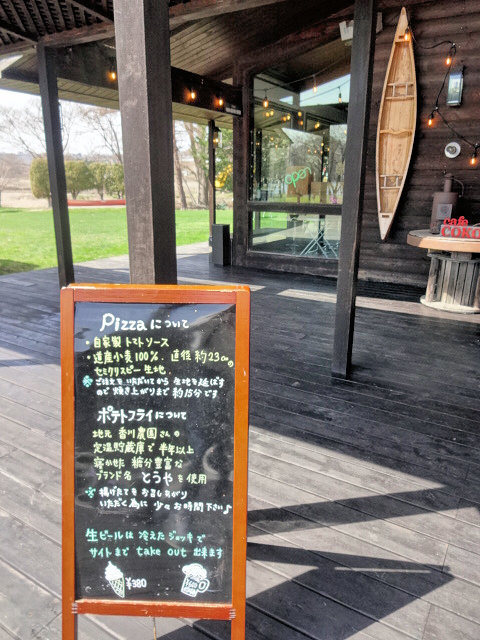 open
cafe
COKO
Pizza について
・自家製 トマトソース
・道産小麦100%. 直径 約23cmの
セミクリスピー 生地.
※ご注文を いただいてから 生地を延ばす
ので 焼き上がりまで 約15分です
ポテトフライについて
地元 香川農園さんの
定温貯蔵庫で 半年以上
寝かせた 糖分豊富な
ブランド名 とうやを使用
※揚げたてを お召し上がり
いただく為に 少々お時間下さい♪
生ビールは 冷えたジョッキで
サイトまで take out 出来ます
¥380